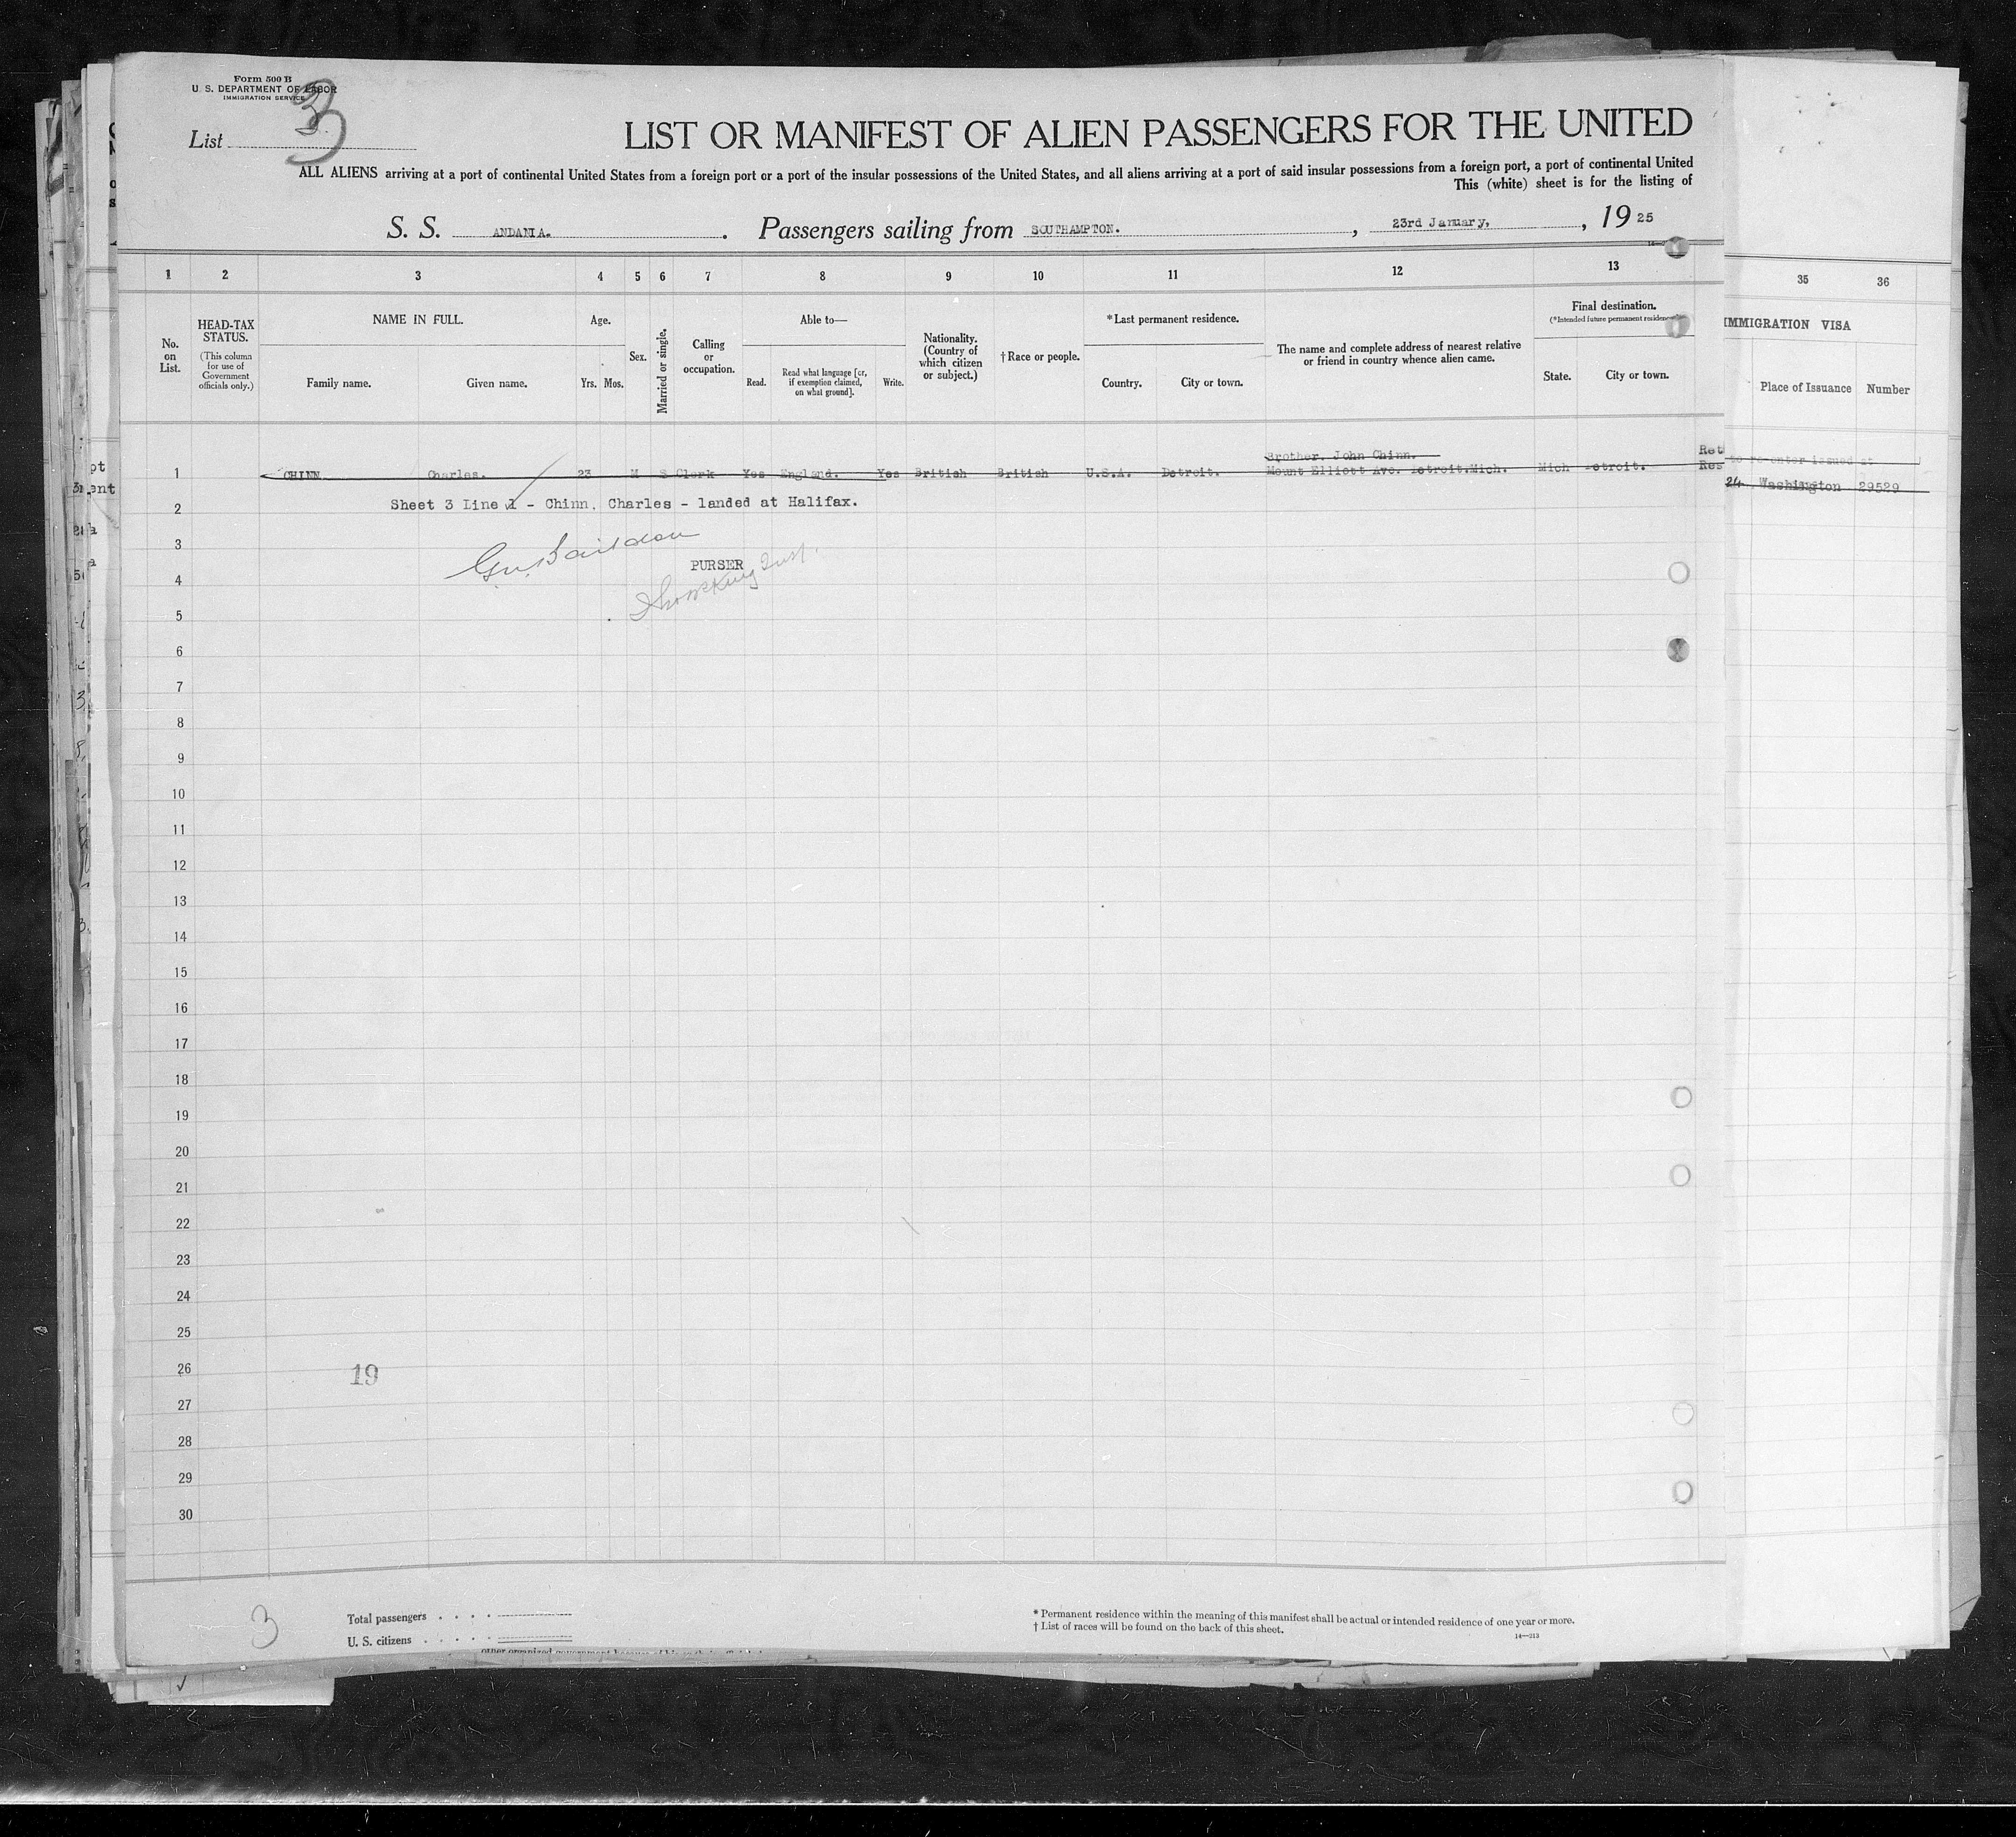 Form 500 B
U. S. DEPARTMENT OF LABOR
IMMIGRATION SERVICE
List 3
LIST OR MANIFEST OF ALIEN PASSENGERS FOR THE UNITED
ALL ALIENS arriving at a port of continental United States from a foreign port or a port of the insular possessions of the United States, and all aliens arriving at a port of said insular possessions from a foreign port, a port of continental United
This (white) sheet is for the listing of
S. S. ANDANIA. Passengers sailing from SOUTHAMPTON. , 23rd January, , 1925
1 2 3 4 5 6 7 8 9 10 11 12 13 35 36
No. on List.
HEAD-TAX STATUS.
(This column for use of Government officials only.)
NAME IN FULL.
Family name. Given name.
Age.
Yrs. Mos.
Sex.
Married or single.
Calling or occupation.
Able to—
Read. Read what language [or, if exemption claimed, on what ground]. Write.
Nationality. (Country of which citizen or subject.)
†Race or people.
*Last permanent residence.
Country. City or town.
The name and complete address of nearest relative or friend in country whence alien came.
Final destination.
(*Intended future permanent residence.)
State. City or town.
IMMIGRATION VISA
Place of Issuance Number
Brother, John Chinn.
1 CHINN Charles. 23 M S Clerk Yes England. Yes British British U.S.A. Detroit. Mount Elliott Ave. Detroit.Mich. Mich Detroit.
Ret
Res
to re-enter issued at
24 Washington 29529
2 Sheet 3 Line 1 - Chinn, Charles - landed at Halifax.
3
PURSER
4
5
6
7
8
9
10
11
12
13
14
15
16
17
18
19
20
21
22
23
24
25
26 19
27
28
29
30
3
Total passengers
U. S. citizens
* Permanent residence within the meaning of this manifest shall be actual or intended residence of one year or more.
† List of races will be found on the back of this sheet.
14—213